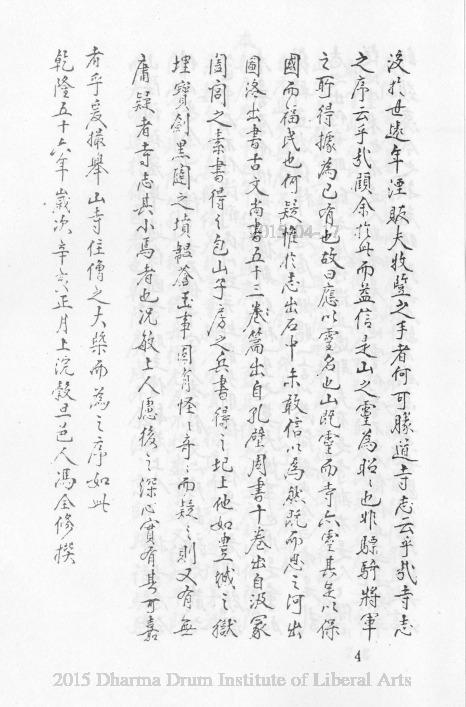 沒於世遠年湮販夫牧豎之手者何可勝道寺志云乎哉寺志
之序云乎哉顧余於此而益信是山之靈為昭昭也非驃騎將軍
之所得據為己有也故曰應以靈名也山既靈而寺亦靈其足以保
國而福民也何疑惟於志出石中未敢信以為然既而思之河出
圖洛出書古文尚書五十三卷篇出自孔壁周書十卷出自汲冢
闔閭之素書得之包山子房之兵書得之圯上他如豐城之獄
埋寶劍黑闥之墳殺蒼玉事固有怪怪奇奇而疑疑則又有無
庸疑者寺志其小焉者也况敏上人慮後之深心實有其可嘉
者乎爰撮舉山寺住僧之大槩而為之序如此
乾隆五十六年歲次辛亥正月上浣穀旦邑人馮全修撰
2015-04-17
4
2015 Dharma Drum Institute of Liberal Arts